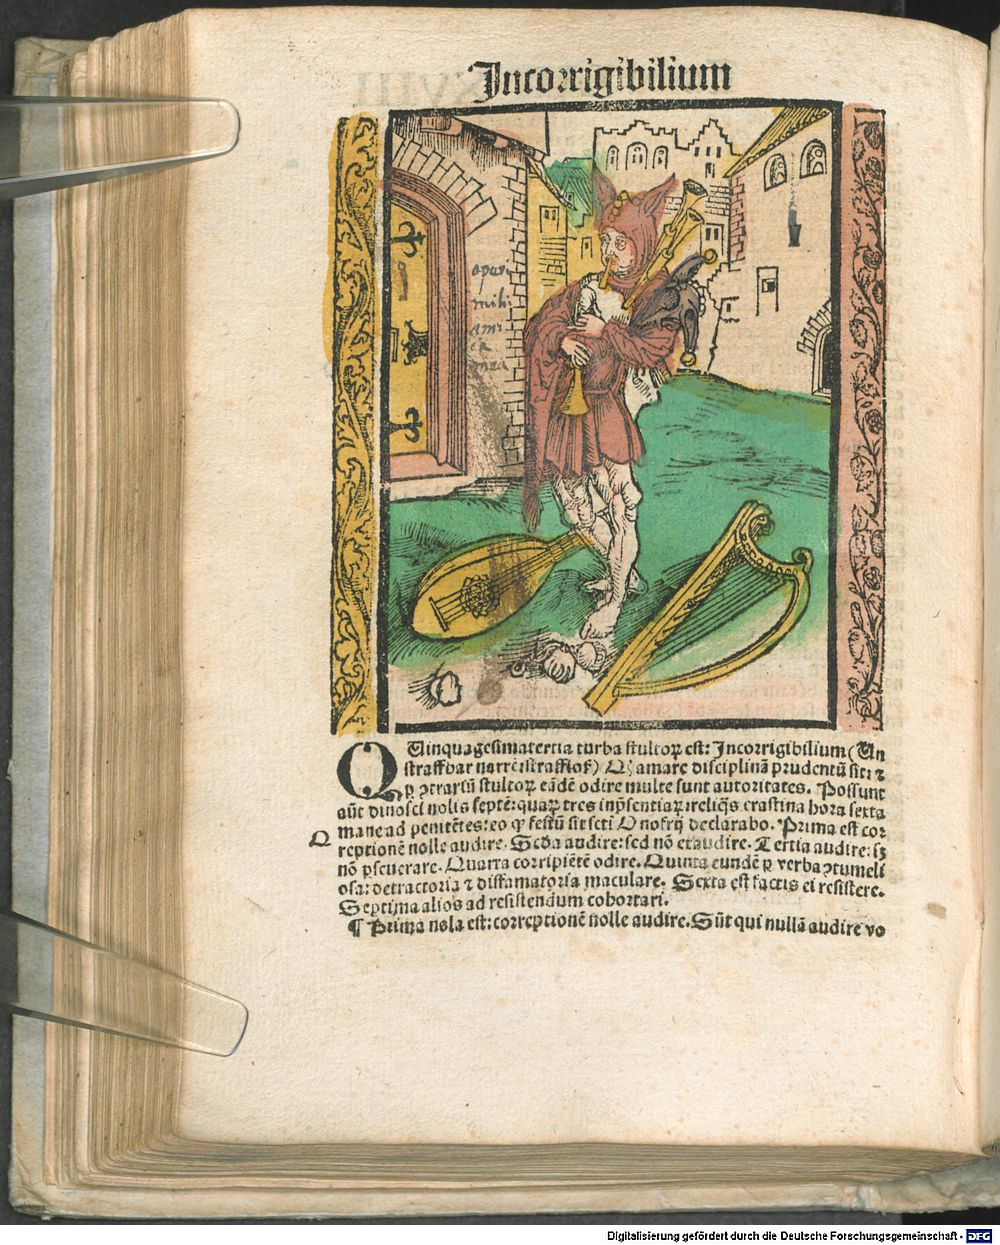 Incorrigibilium
opus
mihi
ami
QUinquagesimatertia turba stultoꝝ est: Incorrigibilium (Un
straffbar narrē: strafflos) Qͣ amare disciplinā prudentū sit: ⁊
ꝑ ꝯtrariū stultoꝝ eādē odire multe sunt autoritates. Possunt
aūt dinosci nolis septē: quaꝝ tres inp̄sentiaꝝ: reliq̄s crastina hora sexta
mane ad penitētes: eo ꝙ festū sit scti Onofrij declarabo. Prima est cor
Q
reptionē nolle audire. Scḋa audire: sed nō exaudire. Tertia audire: sꝫ
nō ꝑseuerare. Quarta corripiētē odire. Quinta eundē ꝑ verba ꝯtumeli
osa: detractoria ⁊ diffamatoria maculare. Sexta est factis ei resistere.
Septima alios ad resistendum cohortari.
¶ Prima nola est: correptionē nolle audire. Sūt qui nullā audire vo
Digitalisierung gefördert durch die Deutsche Forschungsgemeinschaft - DFG